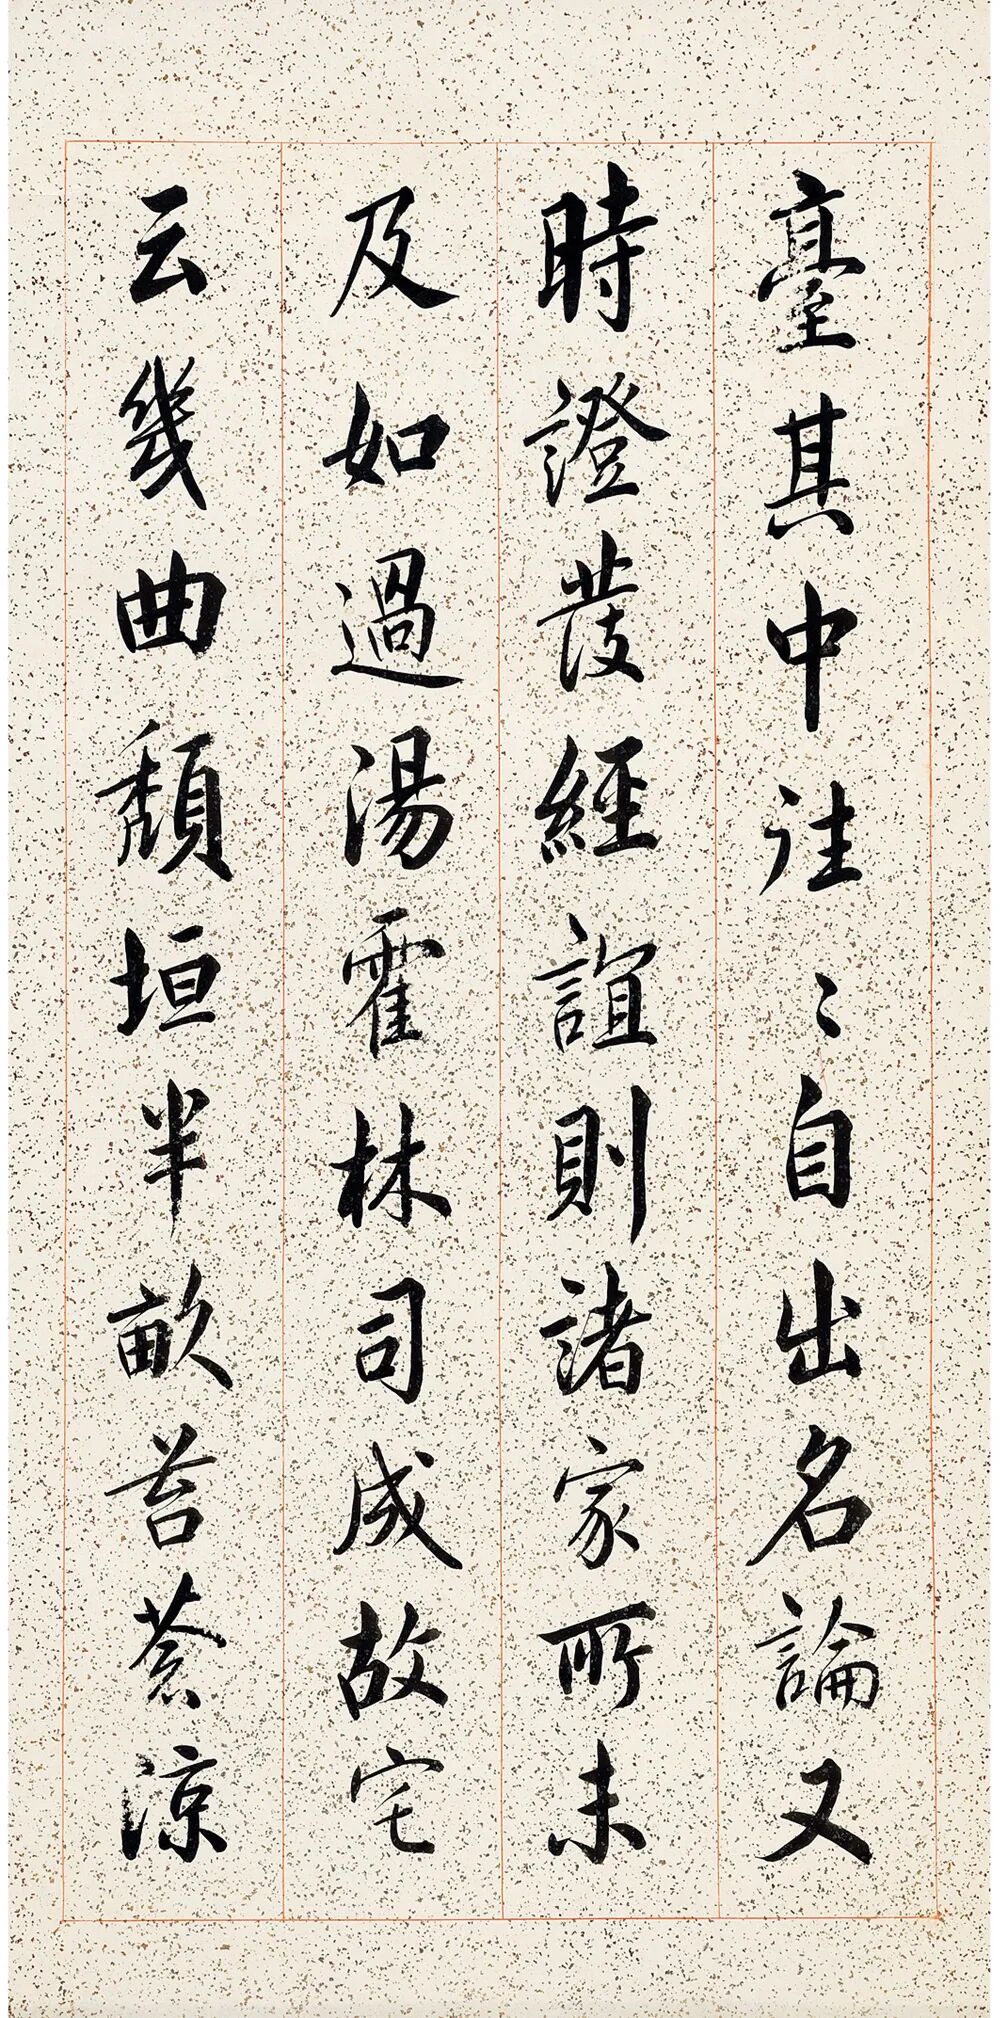 臺其中往〻自出名論又
時證發經誼則諸家所未
及如過湯霍林司成故宅
云幾曲頹垣半畝苔蒼涼